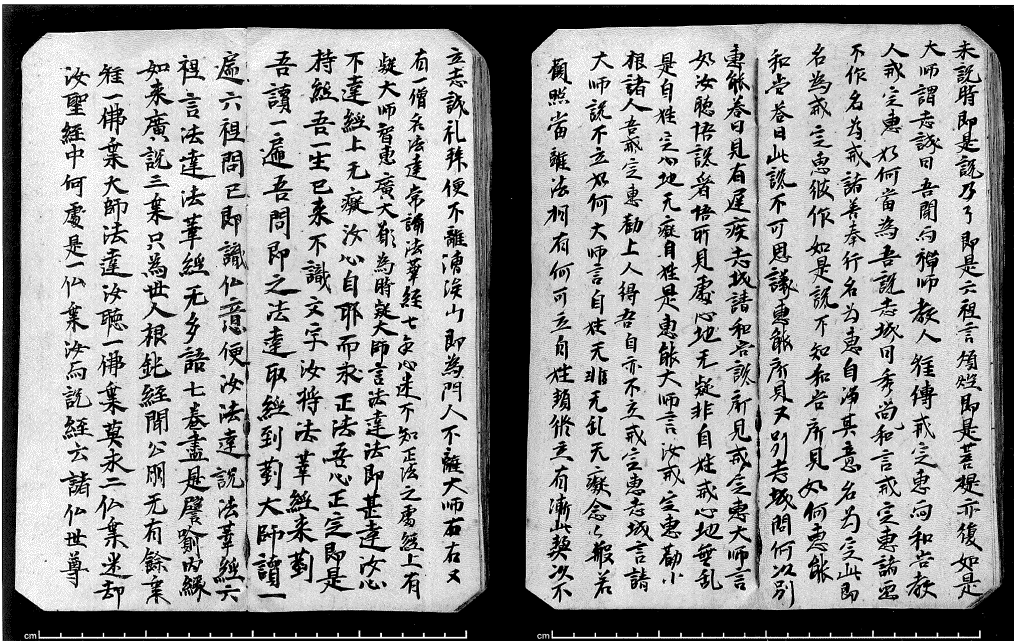 未說時即是說乃了即是六祖言煩惱即是菩提亦復如是
大師謂志誠曰吾聞向禪師教人唯傳戒定惠向和尚教
人戒定惠如何當為吾說志城曰秀尚和言戒定惠諸惡
不作名為戒諸善奉行名為惠自淨其意名為定此即
名為戒定惠彼作如是說不知和尚所見如何惠能
和尚答曰此說不可思議惠能所見又別志城問何以別
惠能答曰見有遲疾志城請和尚說所見戒定惠大師言
如汝聽悟說看悟所見處心地无疑非自姓戒心地無亂
是自姓定心地无癡自姓是惠能大師言汝戒定惠勸小
根諸人吾戒定惠勸上人得吾自亦不立戒定惠志城言請
大師說不立如何大師言自姓无非无乱无癡念〻般若
觀照當離法相有何可立自姓頓修立有漸此契以不
立志誠礼拜便不離漕溪山即為門人不離大師左右又
有一僧名法達常誦法華經七年心迷不知正法之處經上有
疑大師智惠廣大願為時疑大師言法達法即甚達汝心
不達經上无癡汝心自耶而求正法吾心正定即是
持經吾一生已來不識文字汝將法華經來對
吾讀一遍吾問即之法達取經到對大師讀一
遍六祖問已即識仏意便汝法達說法華經六
祖言法達法華經无多語七卷盡是譬喻內緣
如來廣說三乘只為世人根鈍經聞公明无有餘乘
唯一佛乘大師法達汝聽一佛乘莫求二仏乘迷却
汝聖經中何處是一仏乘汝向說經云諸仏世尊
cm
cm